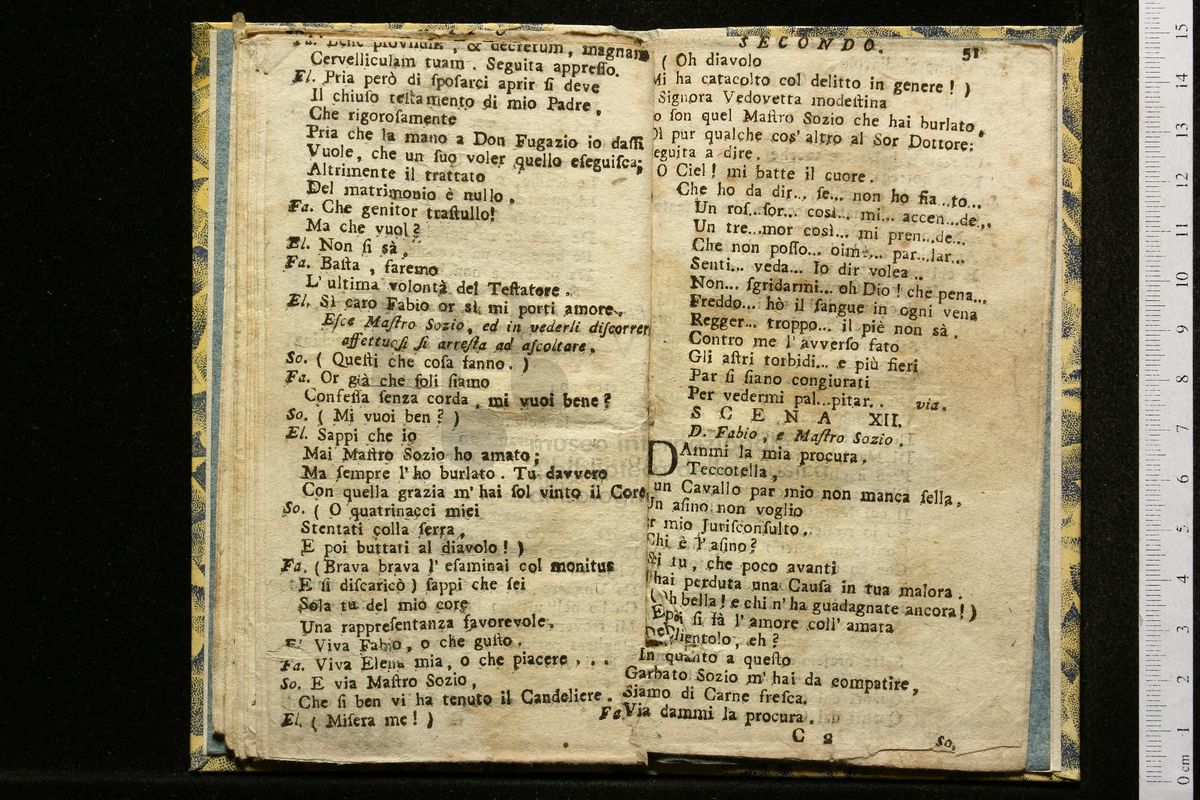 Fa. Bene provisum, & decretum, magnam
Cervelliculam tuam. Seguita appreſſo.
El. Pria però di ſpoſarci aprir ſi deve
Il chiuſo teſtamento di mio Padre,
Che rigoroſamente
Pria che la mano a Don Fugazio io daſſi
Vuole, che un ſuo voler quello eſeguiſca;
Altrimente il trattato
Del matrimonio è nullo.
Fa. Che genitor traſtullo!
Ma che vuol?
El. Non ſi sà,
Fa. Baſta, faremo
L'ultima volontà del Teſtatore.
El. Sì caro Fabio or sì mi porti amore.
Eſce Maſtro Sozio, ed in vederli diſcorrer
affettuoſi ſi arreſta ad aſcoltare.
So. (Queſti che coſa fanno.)
Fa. Or già che ſoli ſiamo
Confeſſa ſenza corda, mi vuoi bene?
So. (Mi vuoi ben?)
El. Sappi che io
Mai Maſtro Sozio ho amato;
Ma ſempre l'ho burlato. Tu davvero
Con quella grazia m'hai ſol vinto il Core
So. (O quatrinacci miei
Stentati colla ſerra,
E poi buttati al diavolo!)
Fa. (Brava brava l'eſaminai col monitus
E ſi diſcaricò) ſappi che ſei
Sola tu del mio core
Una rappreſentanza favorevole.
El. Viva Fabio, o che guſto.
Fa. Viva Elena mia, o che piacere...
So. E via Maſtro Sozio,
Che ſi ben vi ha tenuto il Candeliere.
El. (Miſera me!)
Fa
SECONDO. 51
(Oh diavolo
Mi ha catacolto col delitto in genere!)
Signora Vedovetta modeſtina
o ſon quel Maſtro Sozio che hai burlato,
Dì pur qualche cos'altro al Sor Dottore;
eguita a dire.
O Ciel! mi batte il cuore.
Che ho da dir... ſe... non ho fia...to...
Un roſ...ſor... così... mi... accen...de...
Un tre...mor così... mi pren...de...
Che non poſſo... oimè... par...lar...
Senti... veda... Io dir volea..
Non... ſgridarmi... oh Dio! che pena...
Freddo... hò il ſangue in ogni vena
Regger... troppo... il piè non sà.
Contro me l'avverſo fato
Gli aſtri torbidi... e più fieri
Par ſi ſiano congiurati
Per vedermi pal...pitar.. via.
SCENA XII.
D. Fabio, e Maſtro Sozio.
DAmmi la mia procura,
Teccotella,
un Cavallo par mio non manca ſella,
Un aſino non voglio
er mio Juriſconſulto.
Chi è l'aſino?
Sei tu, che poco avanti
hai perduta una Cauſa in tua malora.
(Oh bella! e chi n'ha guadagnate ancora!)
E poi ſi fà l'amore coll'amata
Del Clientolo, eh?
In quanto a queſto
Garbato Sozio m'hai da compatire,
Siamo di Carne freſca.
Via dammi la procura.
C 2 So.